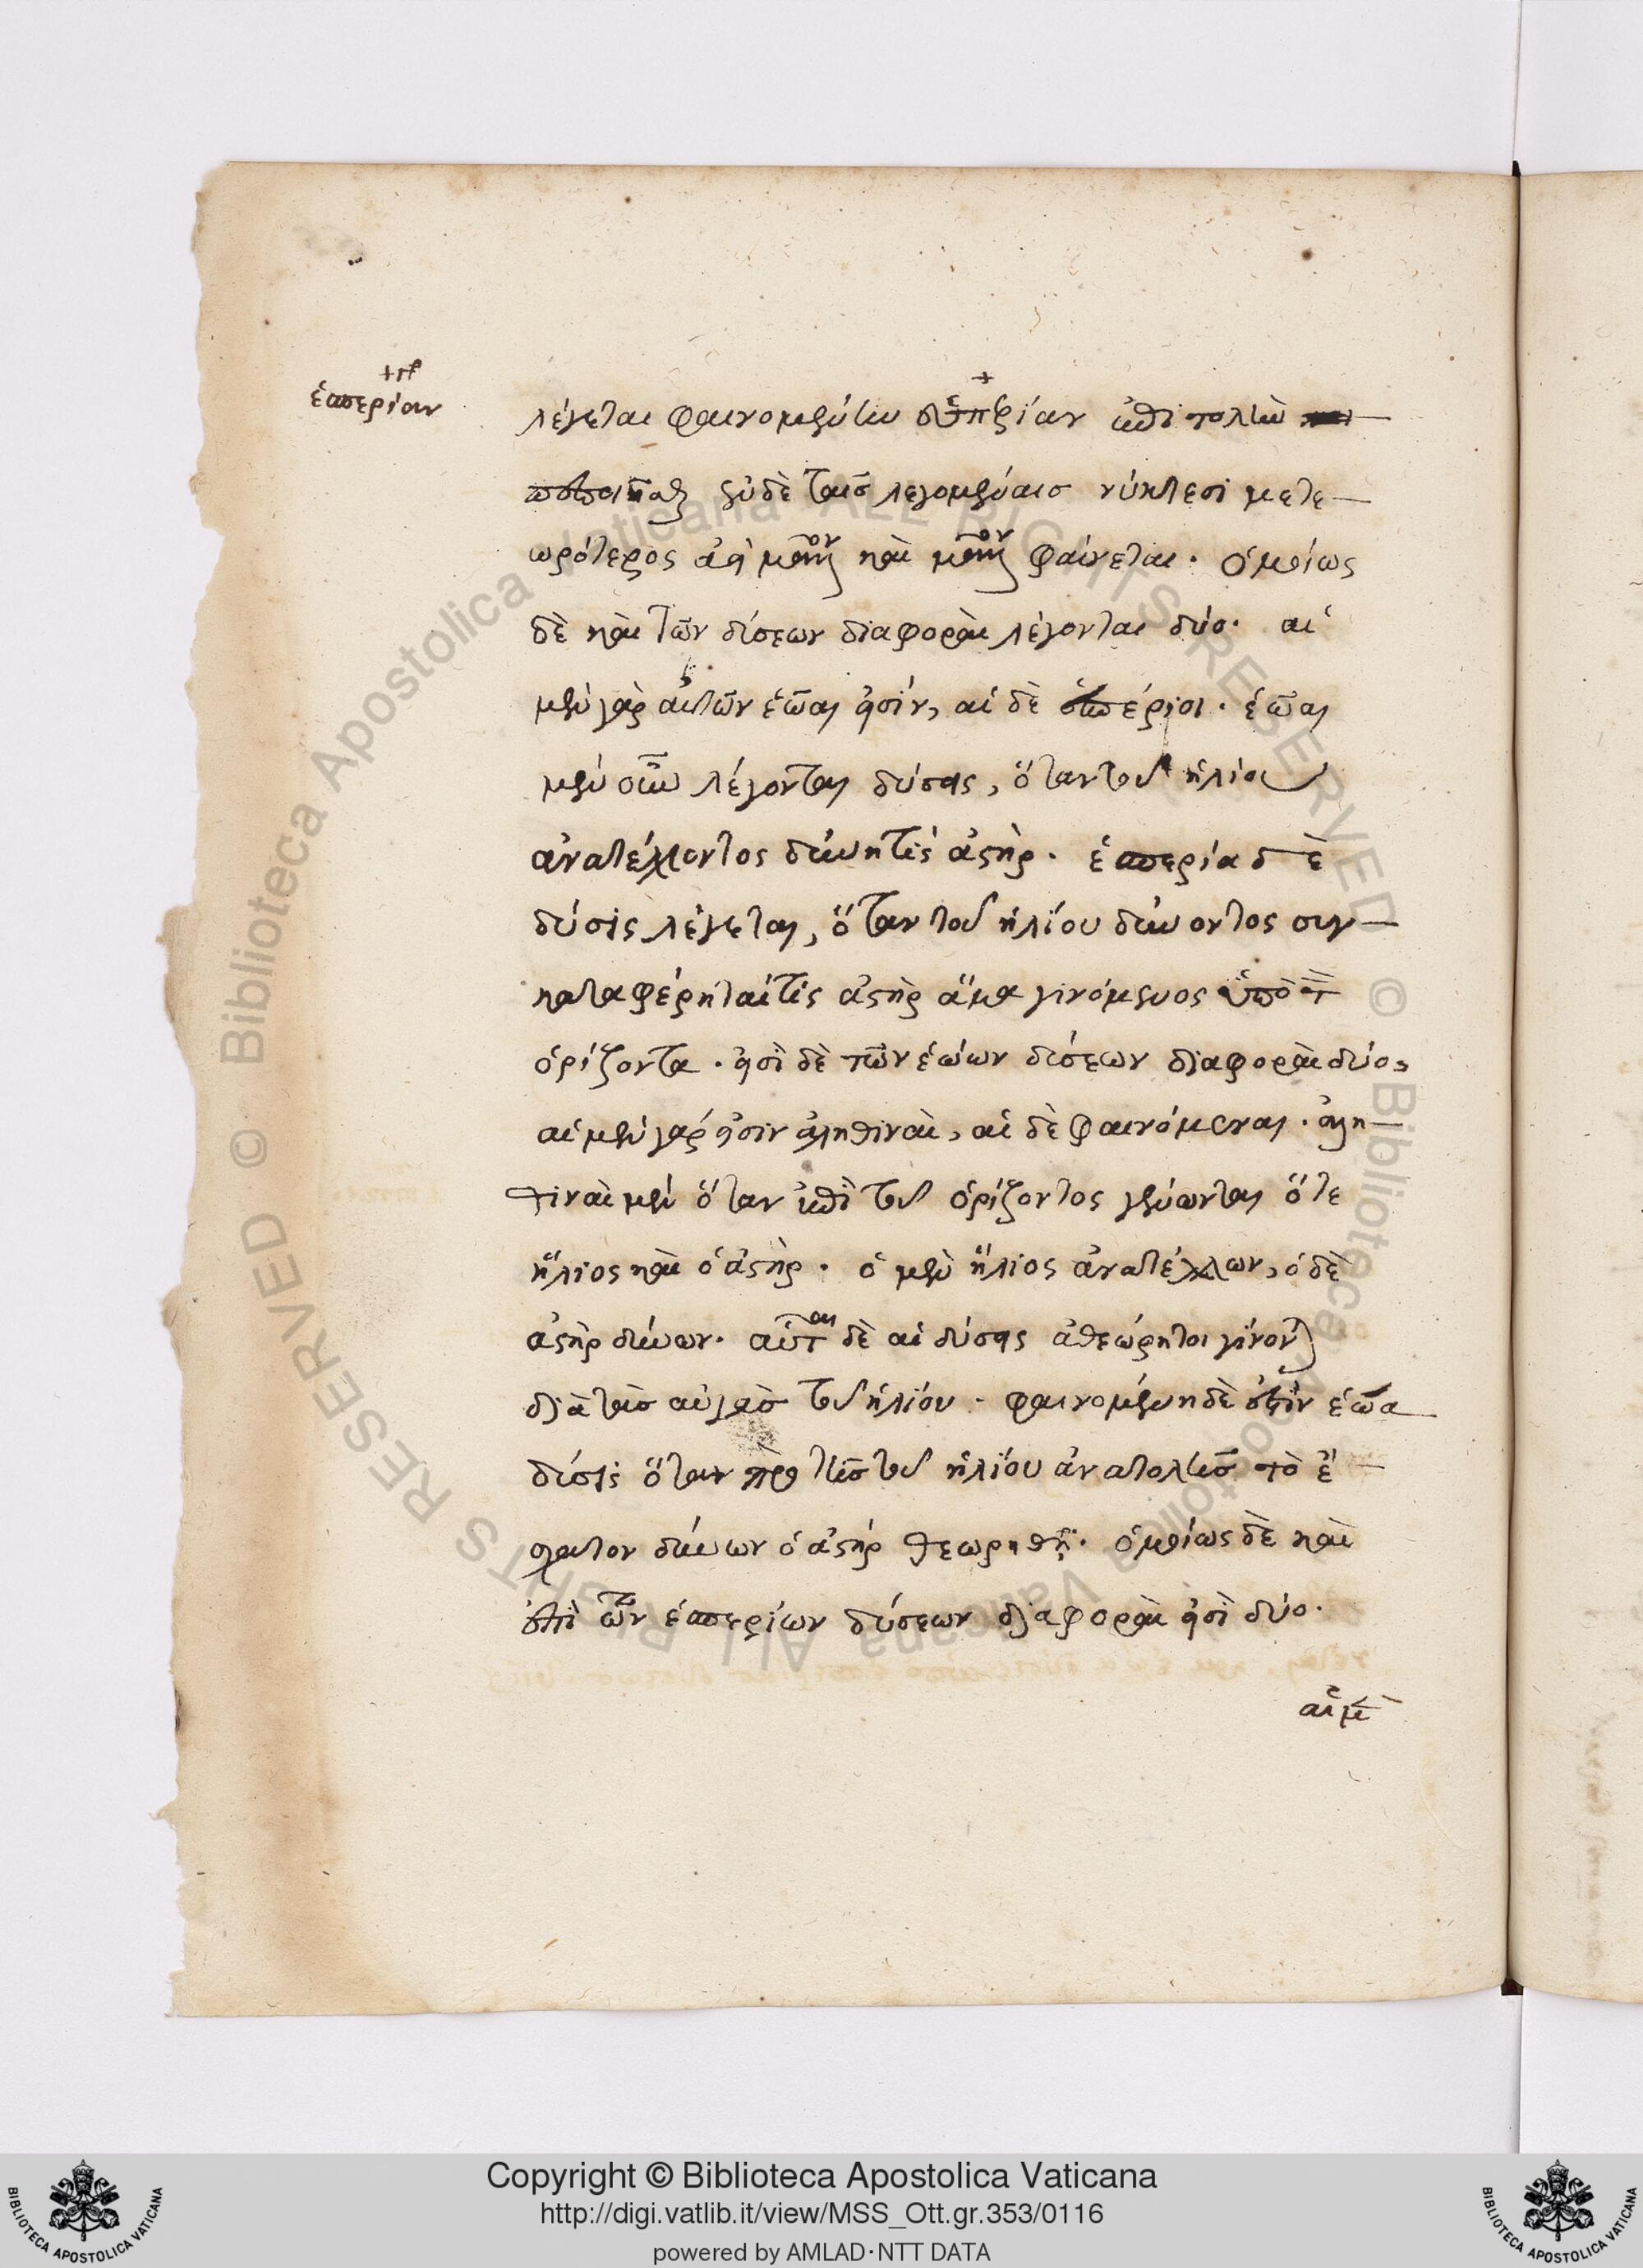 ἑσπερίαν
λέγεται φαινομένην ἑσπερίαν ἐπιτολὴν
ποιεῖται ἐν δὲ ταῖς λεγομέναις νύκτεσι μετε-
ωρότερος ἀεὶ μᾶλλον καὶ μᾶλλον φαίνεται. ὁμοίως
δὲ καὶ τῶν δύσεων διαφοραὶ λέγονται δύο. αἱ
μὲν γὰρ αὐτῶν ἑῷαι εἰσίν, αἱ δὲ ἑσπέριοι. ἑῷαι
μὲν οὖν λέγονται δύσεις, ὅταν τοῦ ἡλίου
ἀνατέλλοντος δύνῃ τὶς ἀστήρ. ἑσπερία δὲ
δύσις λέγεται, ὅταν τοῦ ἡλίου δύνοντος συγ-
καταφέρηταί τις ἀστὴρ ἅμα γινόμενος ὑπὸ τὸν
ὁρίζοντα. εἰσὶ δὲ τῶν ἑῴων δύσεων διαφοραὶ δύο,
αἱ μὲν γάρ εἰσιν ἀληθιναὶ, αἱ δὲ φαινόμεναι. ἀλη-
θιναὶ μὲν ὅταν ἐπὶ τοῦ ὁρίζοντος γένωνται ὅτε
ἥλιος καὶ ὁ ἀστὴρ. ὁ μὲν ἥλιος ἀνατέλλων, ὁ δὲ
ἀστὴρ δύνων. αὗται δὲ αἱ δύσεις ἀθεώρητοι γίνονται
διὰ τὰς αὐγὰς τοῦ ἡλίου. φαινομένη δὲ ἐστὶν ἑῴα
δύσις ὅταν πρὸ τῆς τοῦ ἡλίου ἀνατολῆς τὸ ἔ-
σχατον δύνων ὁ ἀστήρ θεωρηθῇ. ὁμοίως δὲ καὶ
ἐπὶ τῶν ἑσπερίων δύσεων διαφοραὶ εἰσὶ δύο.
αἱ μὲν
Copyright © Biblioteca Apostolica Vaticana
http://digi.vatlib.it/view/MSS_Ott.gr.353/0116
powered by AMLAD·NTT DATA
BIBLIOTECA APOSTOLICA VATICANA
BIBLIOTECA APOSTOLICA VATICANA
© Biblioteca Apostolica Vaticana ALL RIGHTS RESERVED © Biblioteca Apostolica Vaticana ALL RIGHTS RESERVED